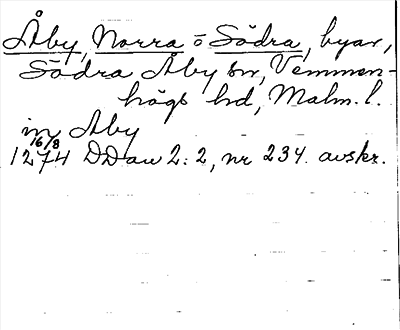 Åby, Norra o Södra, byar,
Södra Åby sn, Vemmen-
högs hd, Malm. l.
in Aby
16/8
1274 DDan 2:2, nr 234. avskr.